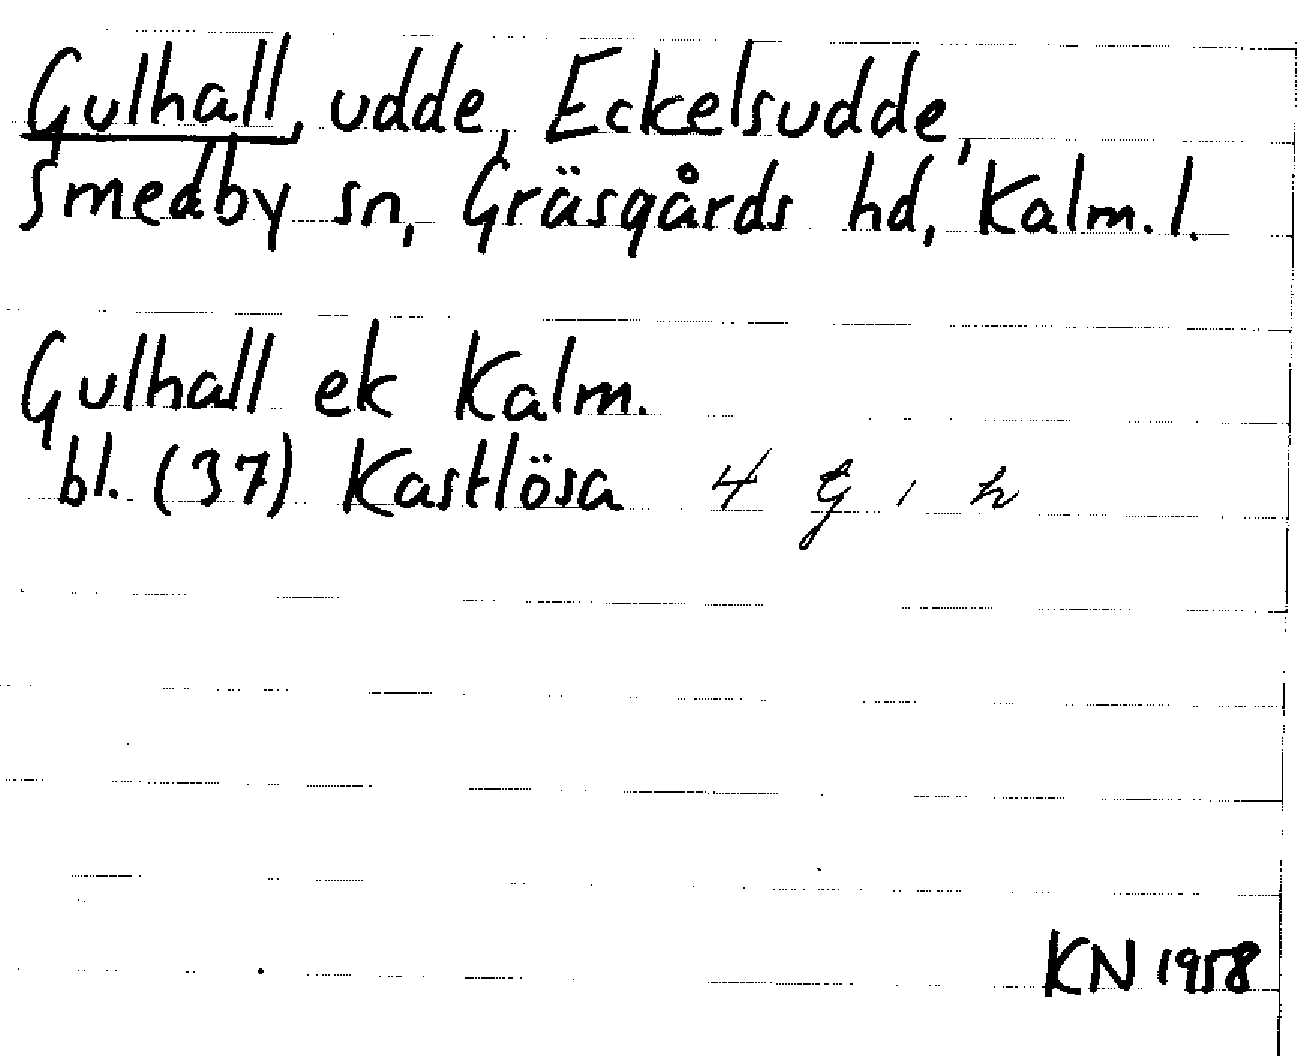 Gulhall, udde, Eckelsudde,
Smedby sn, Gräsgårds hd, Kalm. l.
Gulhall ek Kalm.
bl. (37) Kastlösa 4 g, h
KN 1958